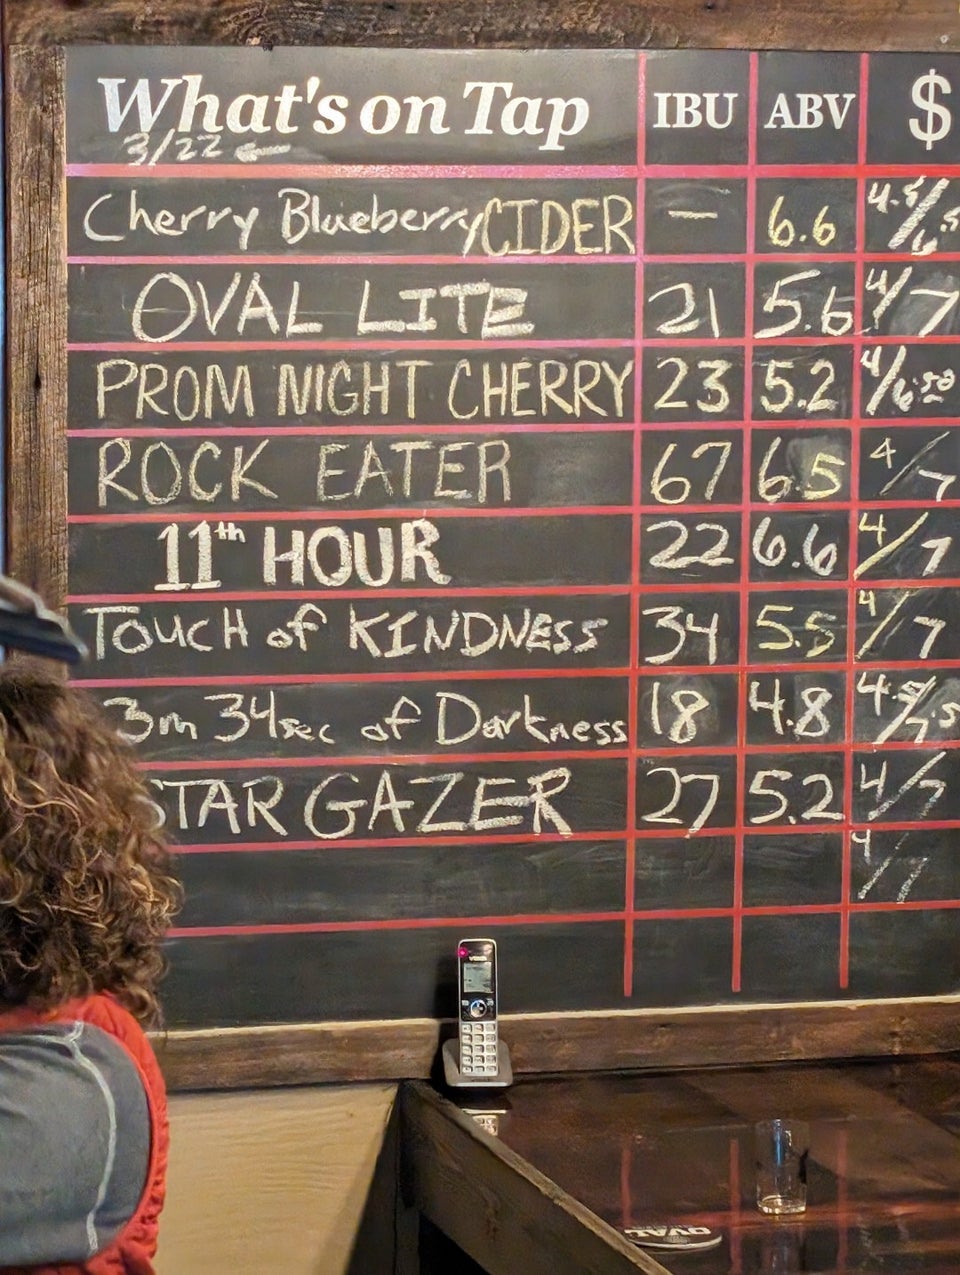 What's on Tap IBU ABV $
3/22
Cherry Blueberry CIDER — 6.6 4.5/6.5
OVAL LITE 21 5.6 4/7
PROM NIGHT CHERRY 23 5.2 4/6.50
ROCK EATER 67 6.5 4/7
11th HOUR 22 6.6 4/7
Touch of KINDNESS 34 5.5 4/7
3m 34sec of Darkness 18 4.8 4.5/7.5
STAR GAZER 27 5.2 4/7
4/7
vtech
OVAL